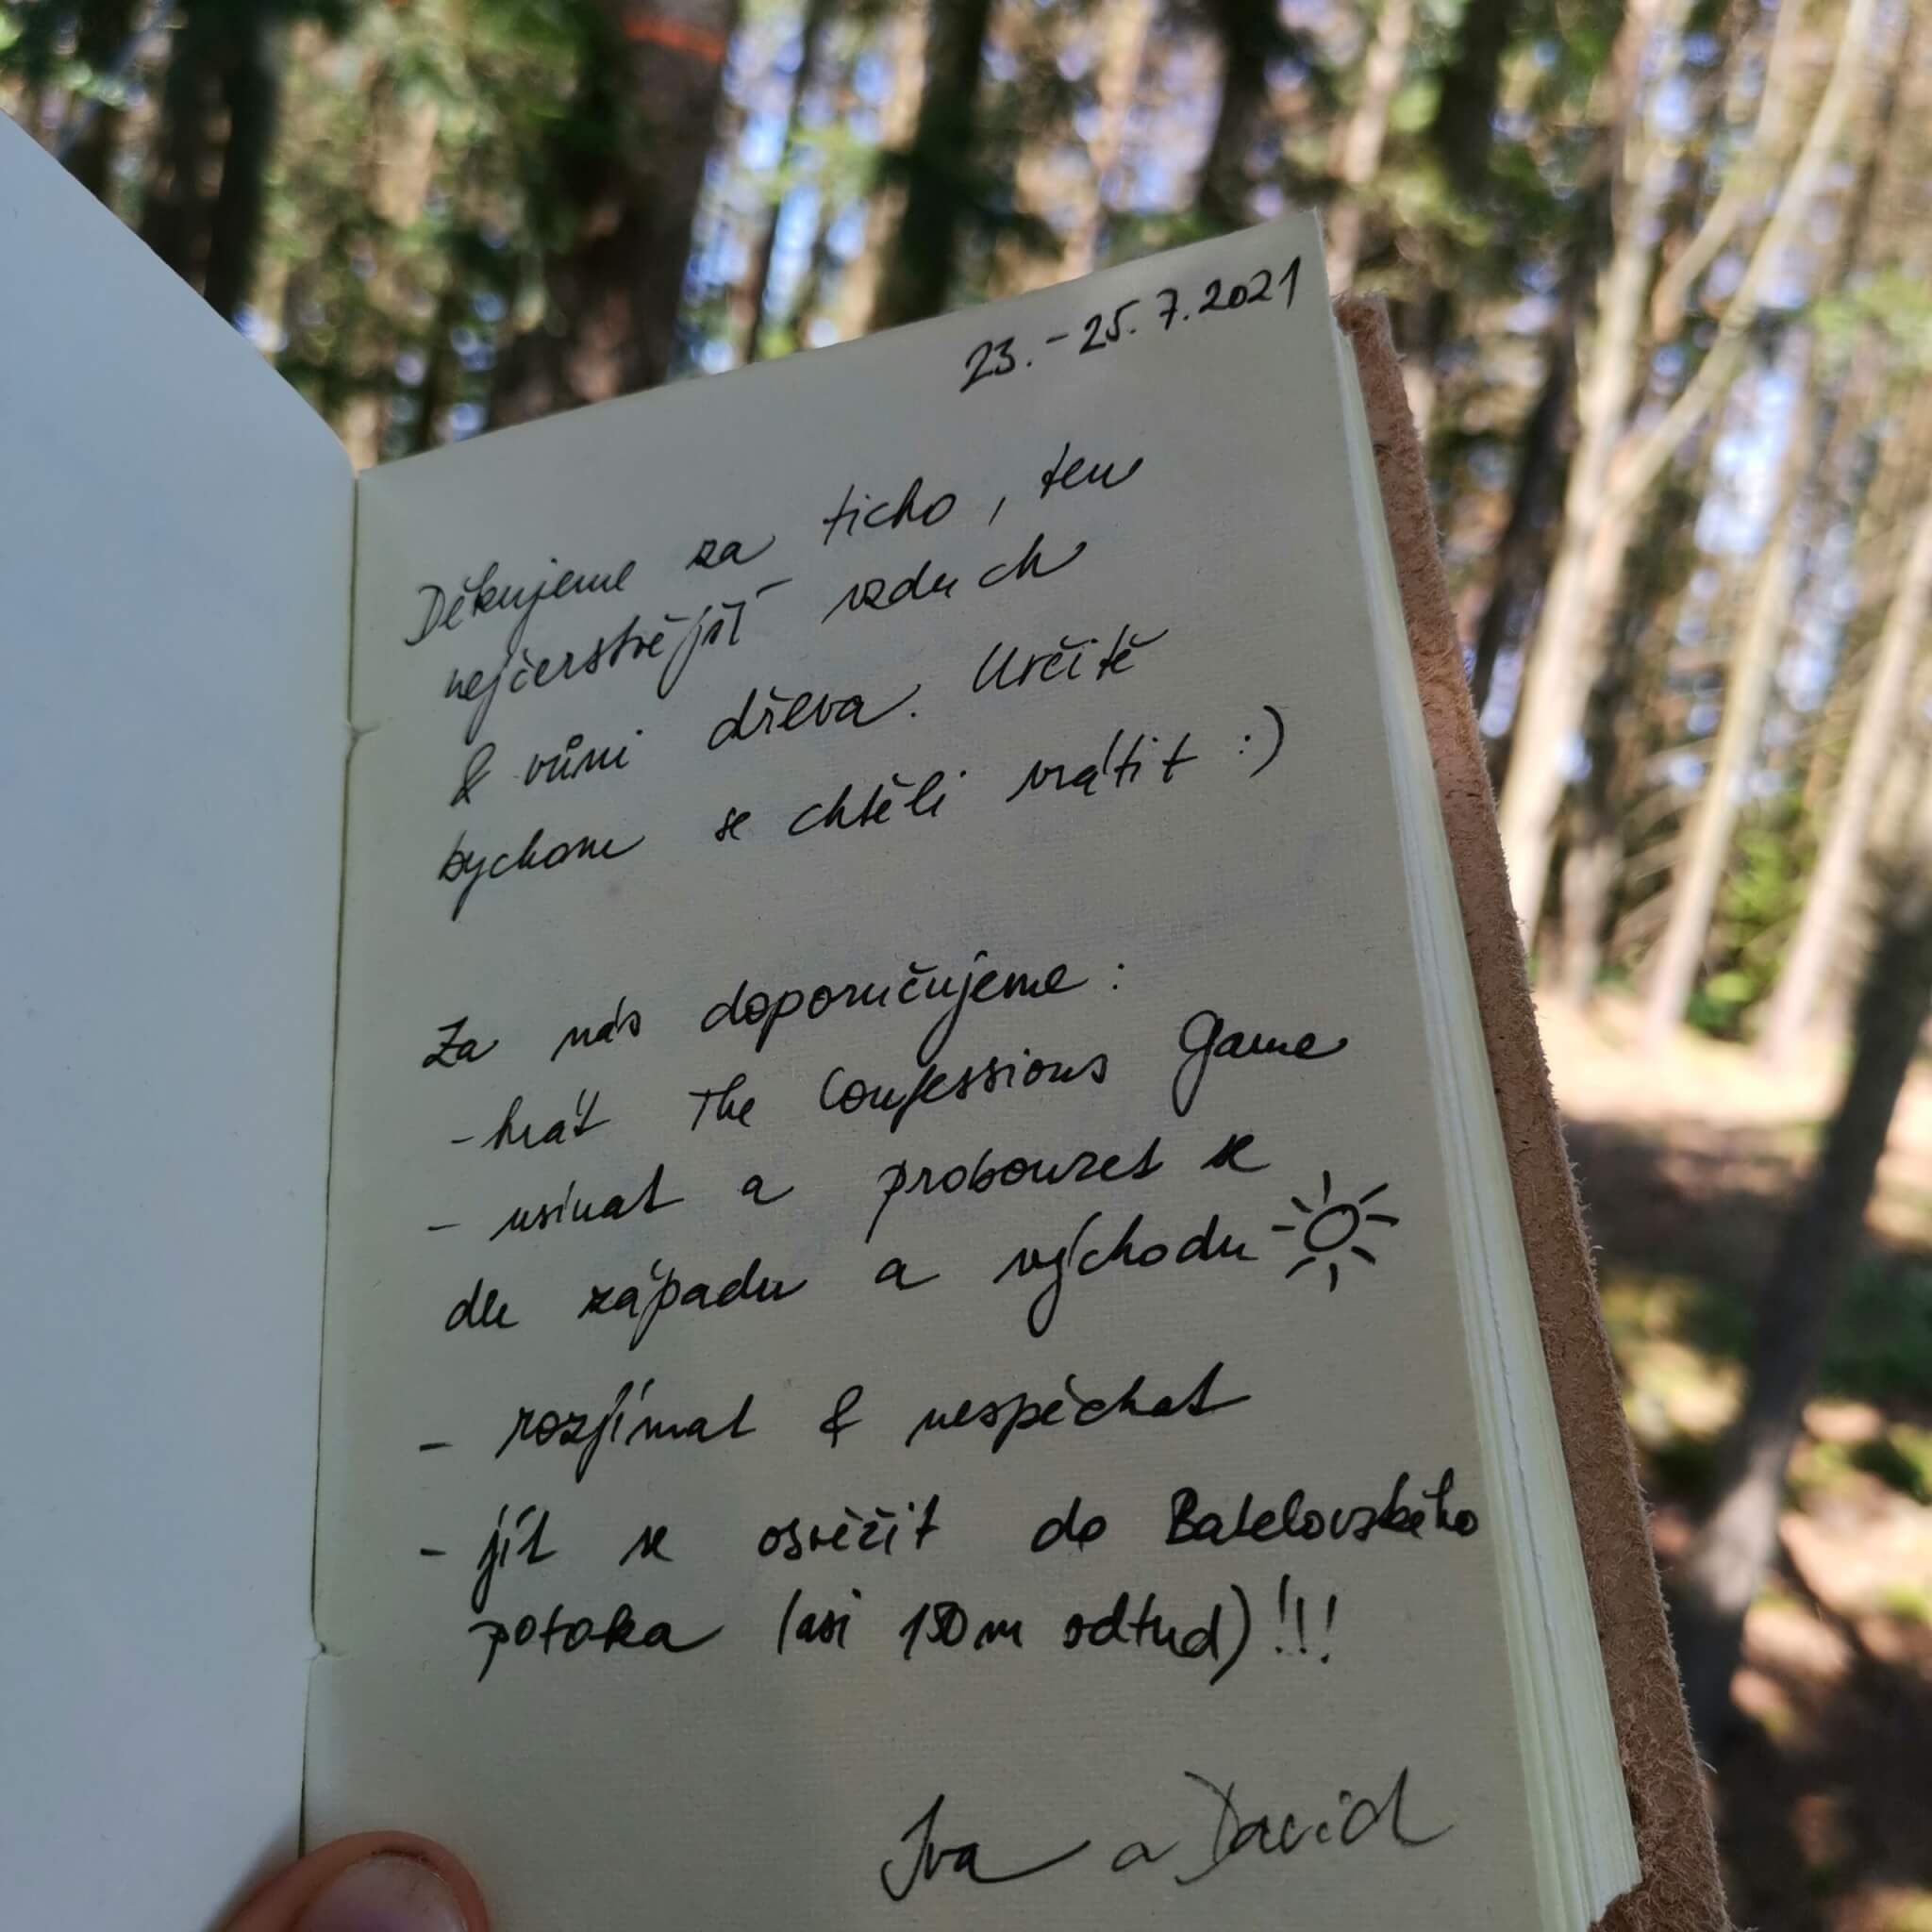 23. - 25. 7. 2021
Děkujeme za ticho, ten
nejčerstvější vzduch
& vůni dřeva. Určitě
bychom se chtěli vrátit :)
Za nás doporučujeme :
- hrát The Confessions Game
- usínat a probouzet se
dle západu a východu
- rozjímat & nespěchat
- jít se osvěžit do Batelovského
potoka (asi 150m odtud)!!!
Iva a David